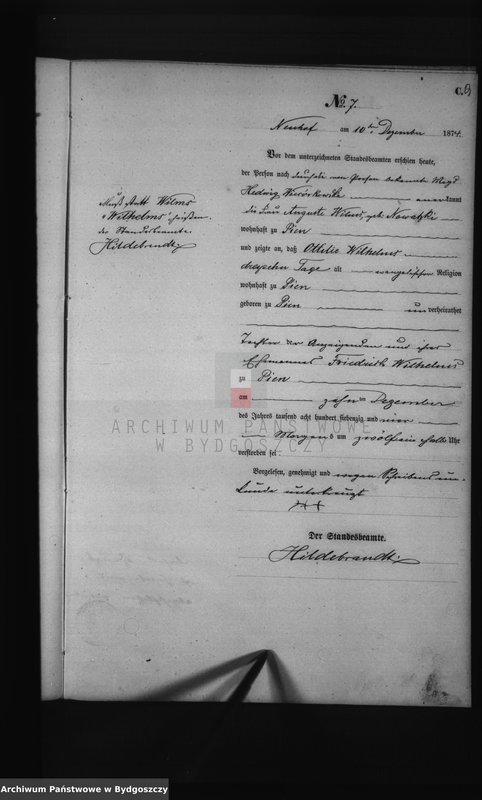 C.
No. 7.
Neuhof am 10ten Dezember 1874.
Vor dem unterzeichneten Standesbeamten erschien heute,
der Person nach durch die von Person bekannte Magd
Hedwig anerkannt
die Frau Auguste Wilms, geb. Nowatzki
wohnhaft zu Pien
und zeigte an, daß Ottilie Wilhelms
dreizehn Tage alt evangelischer Religion
wohnhaft zu Pien
geboren zu Pien unverheirathet
Tochter der Anzeigenden und ihres
Ehemannes Friedrich Wilhelms
zu Pien
am zehnten Dezember
des Jahres tausend acht hundert siebenzig und vier
Morgens um Uhr
verstorben sei
Vorgelesen, genehmigt und wegen Schreibensun-
kunde unterkreuzt
+++
Der Standesbeamte.
Hildebrandt
Muß statt Wilms
"Wilhelms" heißen.
der Standesbeamte.
Hildebrandt
ARCHIWUM PAŃSTWOWE
W BYDGOSZCZY
Archiwum Państwowe w Bydgoszczy